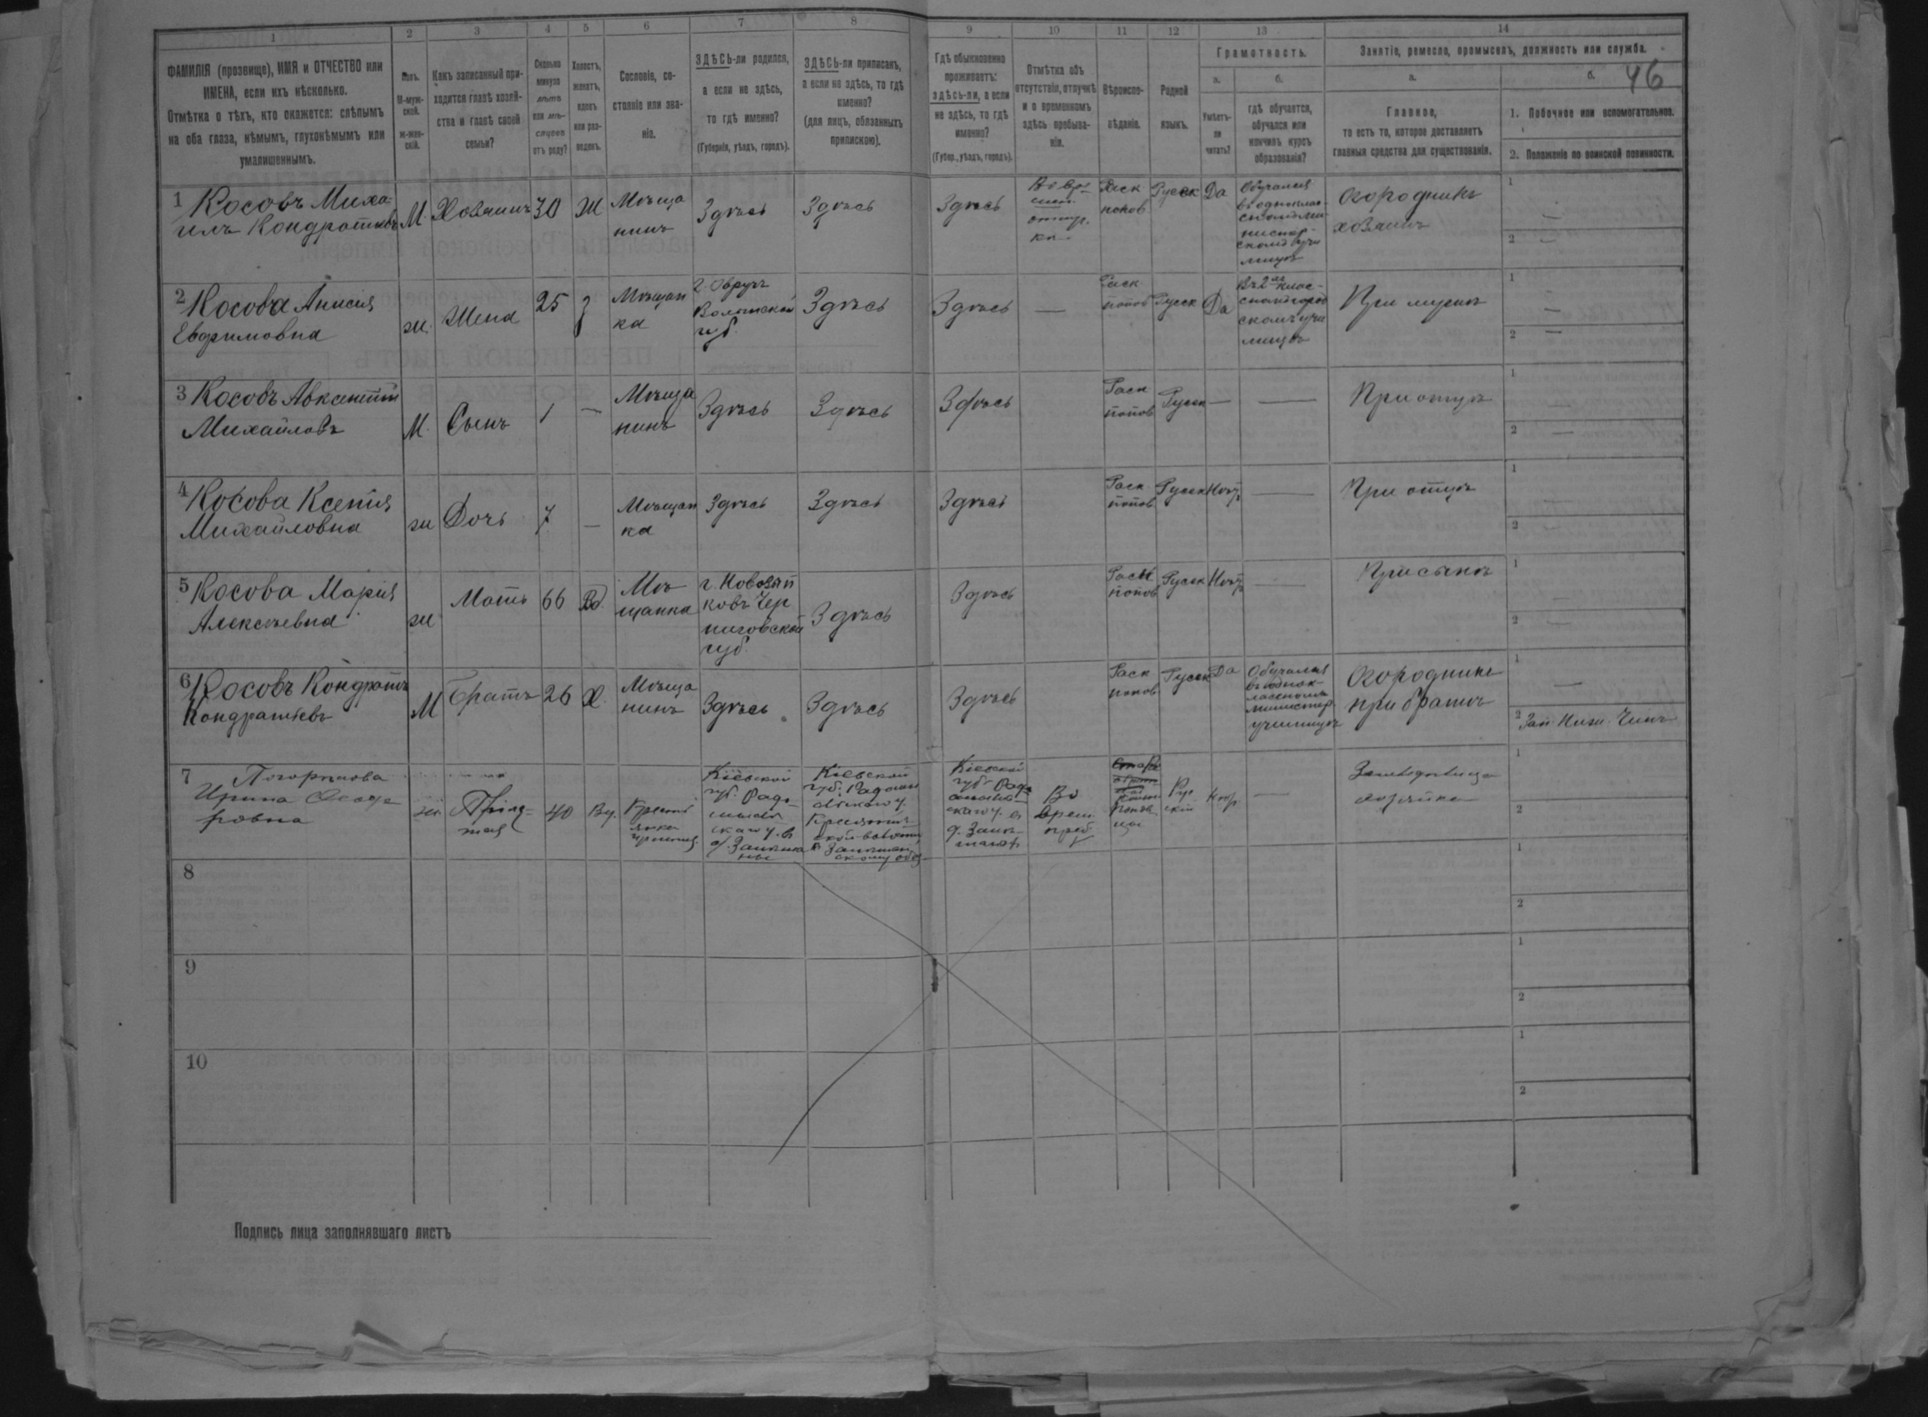 1 2 3 4 5 6 7 8 9 10 11 12 13 14
46
ФАМИЛІЯ (прозвище), ИМЯ и ОТЧЕСТВО или
ИМЕНА, если ихъ нѣсколько.
Отмѣтка о тѣхъ, кто окажется: слѣпымъ
на оба глаза, нѣмымъ, глухонѣмымъ или
умалишеннымъ.
Полъ.
М-муж-
ской.
ж-жен-
скій.
Какъ записанный при-
ходится главѣ хозяй-
ства и главѣ своей
семьи?
Сколько
минуло
лѣтъ
или мѣ-
сяцевъ
отъ роду?
Холостъ,
женатъ,
вдовъ
или раз-
веденъ.
Сословіе, со-
стояніе или зва-
ніе.
ЗДѢСЬ-ли родился,
а если не здѣсь,
то гдѣ именно?
(Губернія, уѣздъ, городъ).
ЗДѢСЬ-ли приписанъ,
а если не здѣсь, то гдѣ
именно?
(для лицъ, обязанныхъ
припискою).
Гдѣ обыкновенно
проживаетъ:
здѣсь-ли, а если
не здѣсь, то гдѣ
именно?
(Губер., уѣздъ, городъ).
Отмѣтка объ
отсутствіи, отлучкѣ
и о временномъ
здѣсь пребыва-
ніи.
Вѣроиспо-
вѣданіе.
Родной
языкъ.
Грамотность.
а.
Умѣетъ-
ли
читать?
б.
гдѣ обучается,
обучался или
кончилъ курсъ
образованія?
Занятіе, ремесло, промыселъ, должность или служба.
а.
Главное,
то есть то, которое доставляетъ
главныя средства для существованія.
б.
1. Побочное или вспомогательное.
2. Положеніе по воинской повинности.
1 Косовъ Миха-
илъ Кондратьевъ
М
Хозяинъ
30
Ж
Мѣща
нинъ
Здѣсь
Здѣсь
Здѣсь
Раск
попов
Русск
Да
Обучался
въ одноклас-
скомъ ми-
нистер-
скомъ учи
лищѣ
Огородникъ
хозяинъ
1 —
2 —
2 Косова Анисія
Евфимовна
ж.
Жена
25
З
Мѣщан
ка
г. Овручъ
Волынской
губ.
Здѣсь
Здѣсь
—
Раск
попов
Русск
Да
Въ 2хъ клас-
сномъ город
скомъ учи
лищѣ
При мужѣ
1 —
2 —
3 Косовъ Авксентій
Михайловъ
М.
Сынъ
1
—
Мѣща
нинъ
Здѣсь
Здѣсь
Здѣсь
Раск
попов
Русск
—
—
При отцѣ
1 —
2 —
4 Косова Ксенія
Михайловна
ж
Дочь
7
—
Мѣщан
ка
Здѣсь
Здѣсь
Здѣсь
Раск
попов
Русск
Нѣтъ
—
При отцѣ
1 —
2 —
5 Косова Марія
Алексѣевна
ж
Мать
66
Вд.
Мѣ
щанка
г. Новозыб
ковъ Чер
ниговской
губ.
Здѣсь
Здѣсь
Раск
попов
Русск
Нѣтъ
—
При сынѣ
1 —
2 —
6 Косовъ Кондратъ
Кондратьевъ
М
Братъ
26
Х.
Мѣща
нинъ
Здѣсь
Здѣсь
Здѣсь
Раск
попов
Русск
Да
Обучался
въ однок-
лассномъ
министер
училищѣ
Огородникъ
при братѣ
1 —
2 Зап. Ниж. Чинъ
7
Ирина
ж
40
Кіевской
губ. Радо-
мысль
скаго у. в
Кіевской
губ. Радомы
Кіевской
губ. Радо
скаго у. в
Во
врем.
преб.
Рус
скій
Нѣтъ
—
хозяйка
1
2
8
1
2
9
1
2
10
1
2
Подпись лица заполнявшаго листъ